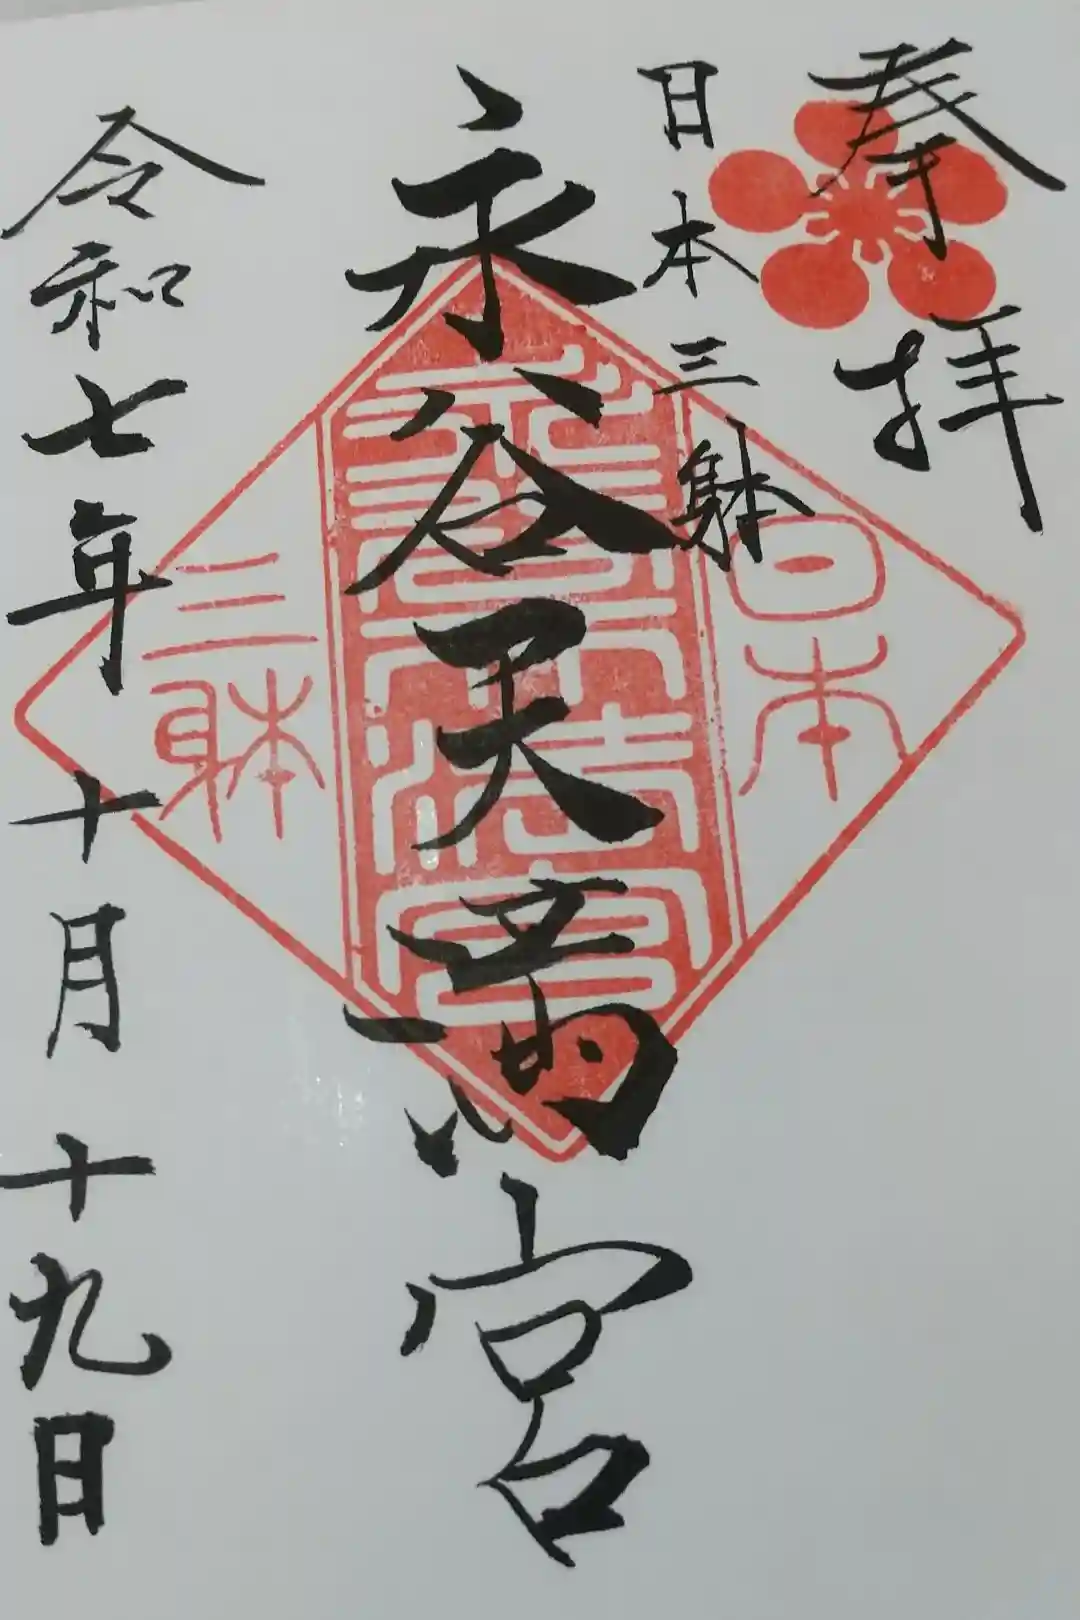 奉拝
日本三躰
永谷天満宮
令和七年十月十九日
日本
永谷天満宮
三躰